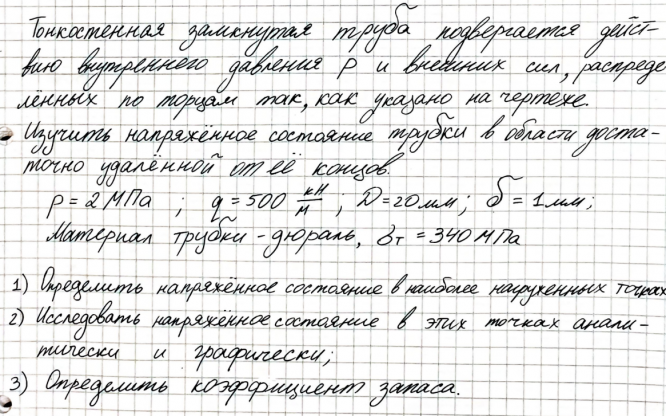 Тонкостенная замкнутая труба подвергается дейст-
вию внутреннего давления P и внешних сил, распреде
лённых по торцам так, как указано на чертеже.
Изучить напряжённое состояние трубки в области доста-
точно удалённой от её концов.
p = 2 МПа ; q = 500 кН/м ; D = 20 мм ; δ = 1 мм ;
Материал трубки - дюраль, σт = 340 МПа
1) Определить напряжённое состояние в наиболее нагруженных точках
2) Исследовать напряжённое состояние в этих точках анали-
тически и графически;
3) Определить коэффициент запаса.